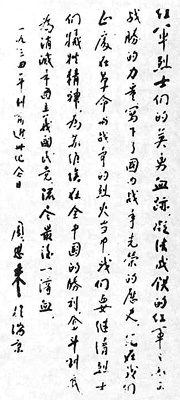 红军烈士们的英勇血迹,凝结成铁的红军之不可
战胜的力量写下了国内战争光荣的历史,现在我们
正处在革命的战争的烈火当中,我们要继续烈士
们牺牲精神,为苏维埃在全中国的胜利,奋斗到底
为消灭帝国主义国民党流尽最后一滴血
一九三四年
周恩来于瑞京